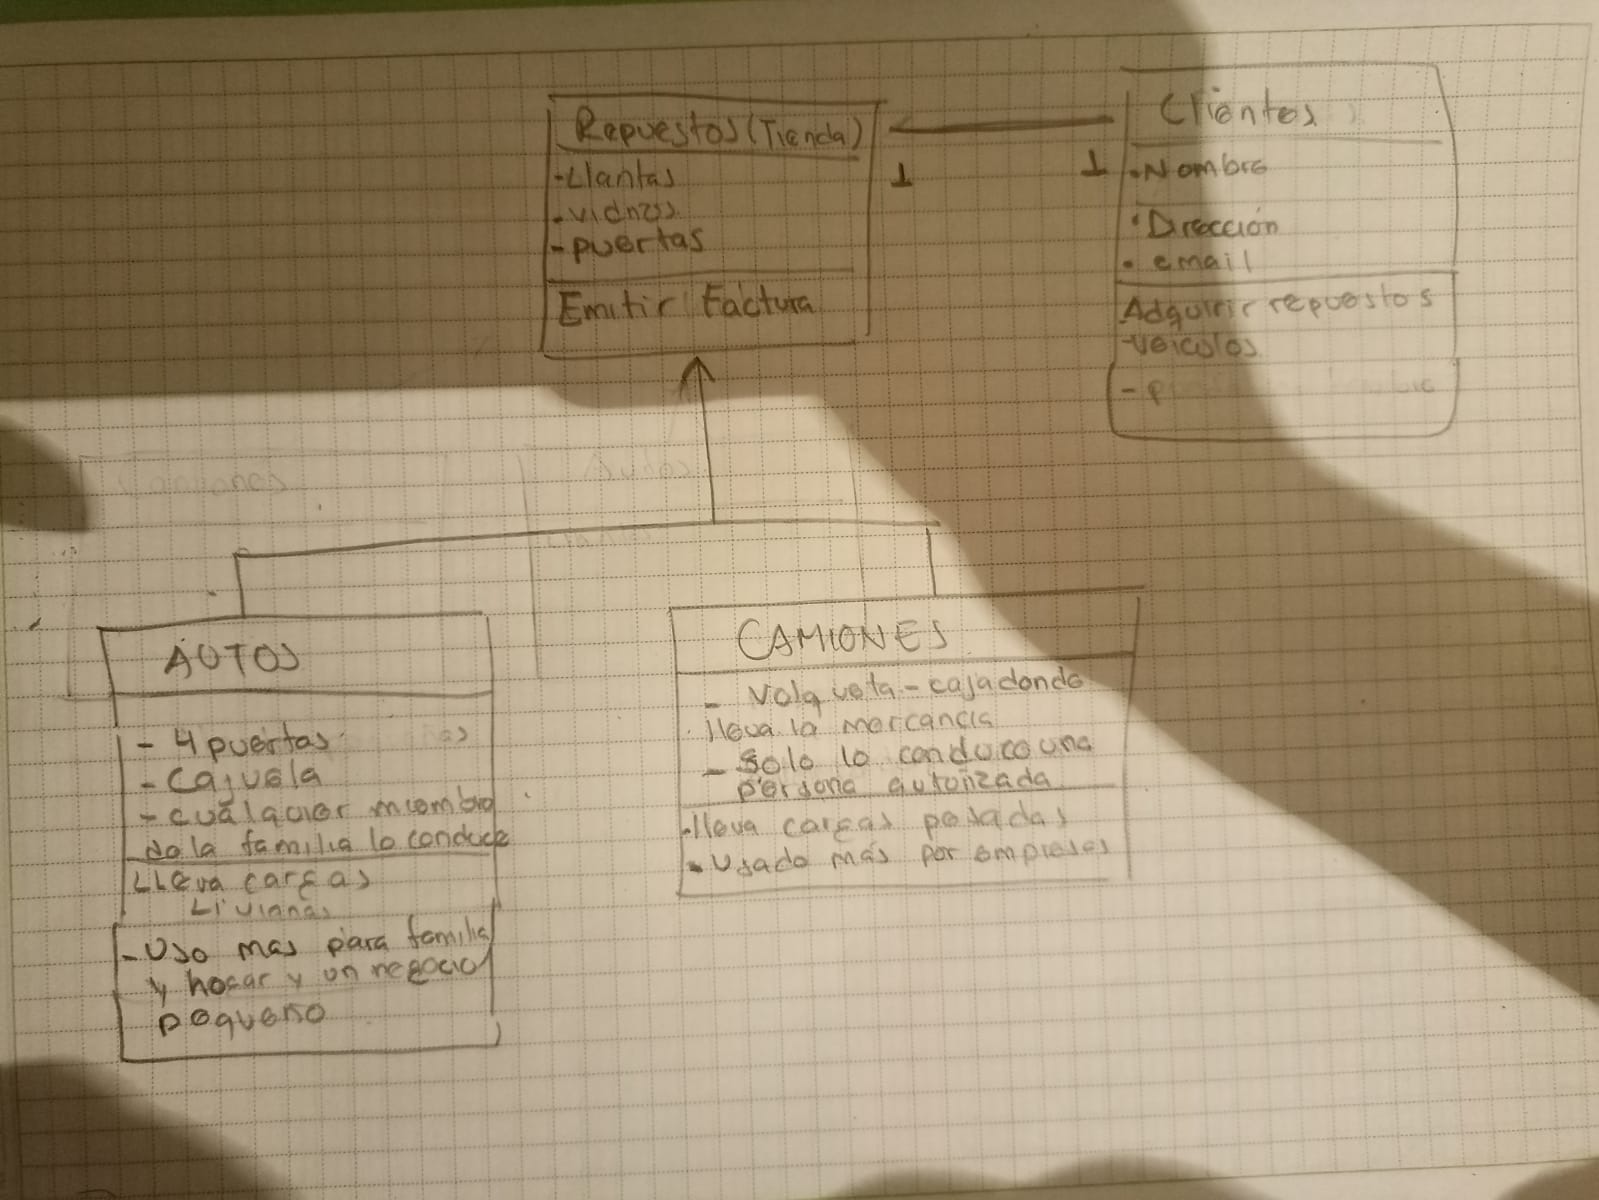 Repuestos (Tienda)
-Llantas
-vidrios
-puertas
Emitir Factura
1
1
Clientes
•Nombre
•Dirección
•email
Adquirir repuestos
-veiculos
AUTOS
- 4 puertas
- cajuela
- cualquier miembro
de la familia lo conduce
LLeva cargas
Livianas
-Uso mas para familia
y hogar y un negocio
pequeño
CAMIONES
- Volqueta - caja donde
lleva la mercancia
- Solo lo conduce una
persona autorizada
-lleva cargas pesadas
-Usado más por empresas